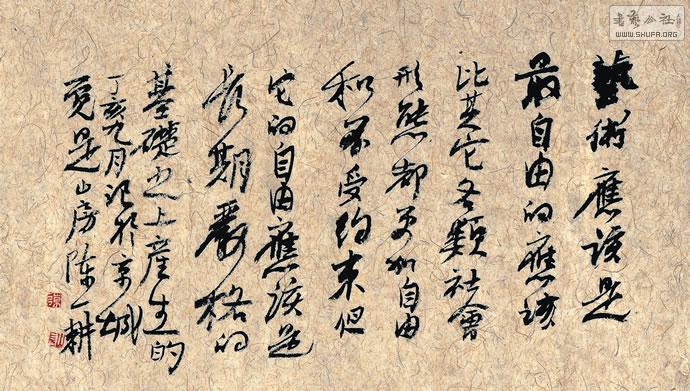 藝術應該是
最自由的應該
比其它各類社會
形態都更加自由
和不受約束但
它的自由應該是
長期嚴格的
基礎之上產生的
丁亥九月記於京城
覓是山房陳一耕
書藝公社
WWW.SHUFA.ORG